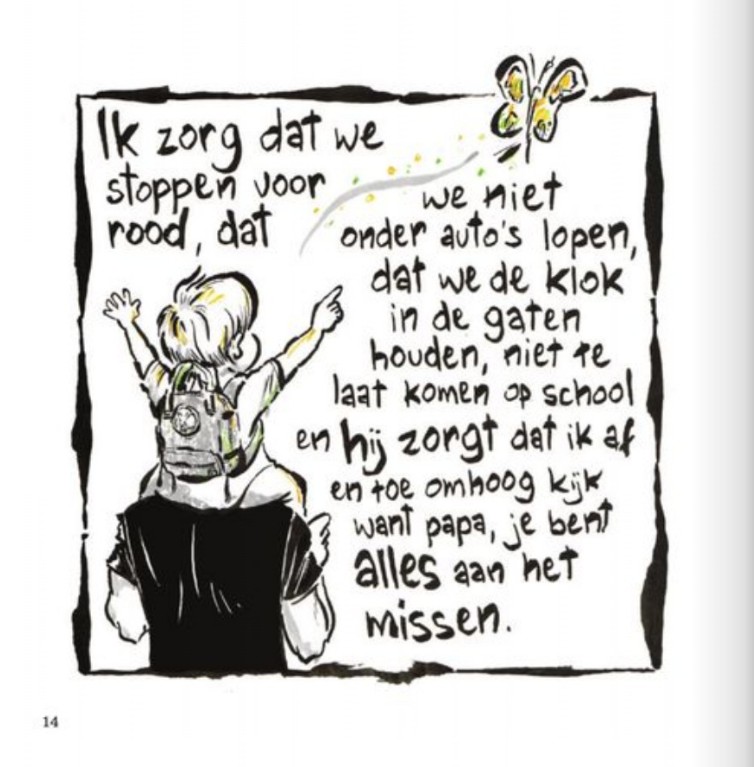 Ik zorg dat we
stoppen voor
rood, dat
we niet
onder auto's lopen,
dat we de klok
in de gaten
houden, niet te
laat komen op school
en hij zorgt dat ik af
en toe omhoog kijk
want papa, je bent
alles aan het
missen.
14